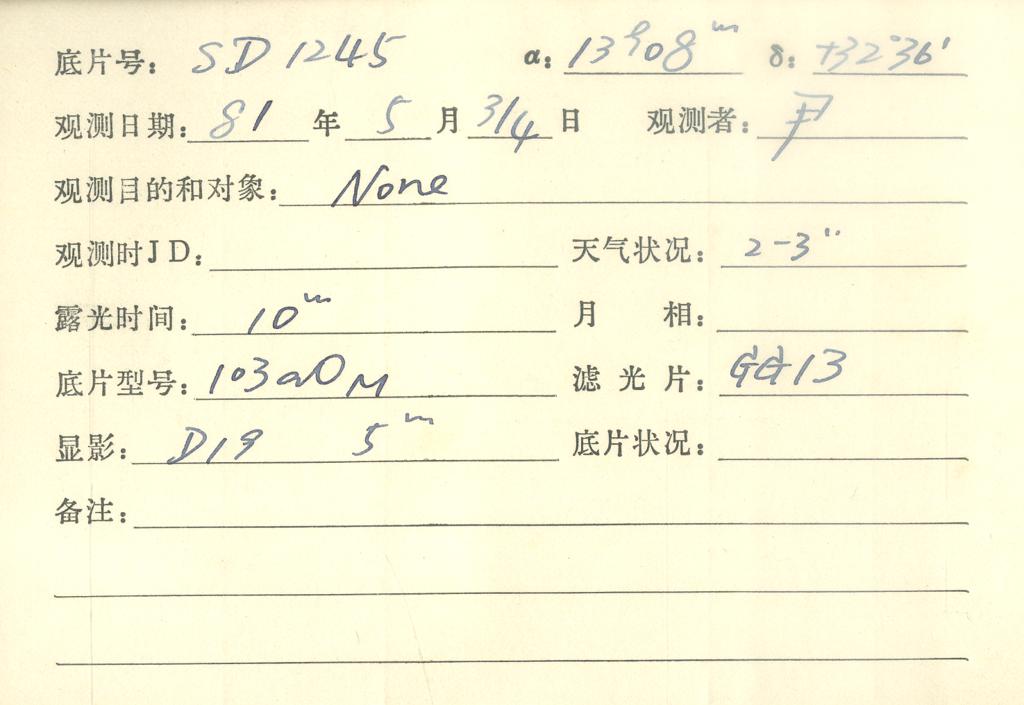 底片号: SD 1245 α: 13h08m δ: +32°36′
观测日期: 81 年 5 月 3/4 日 观测者:
观测目的和对象: None
观测时JD: 天气状况: 2-3″
露光时间: 10m 月 相:
底片型号: 103aO M 滤光片: GG13
显影: D19 5m 底片状况:
备注: